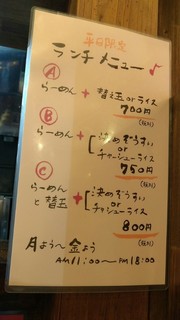 平日限定
ランチメニュー♪
Ⓐ
らーめん + 替え玉 or ライス
700円
(税込)
Ⓑ
らーめん + [ 〆めぞうすい
or
チャーシューライス
750円
(税込)
Ⓒ
らーめん
と 替玉 + [ 〆めぞうすい
or
チャーシューライス
800円
(税込)
月よう〜金よう
AM11:00〜PM18:00